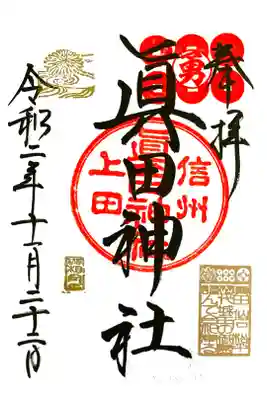 奉拝
勇
眞田神社
信州
上田
眞田神社
令和二年十一月二十二日